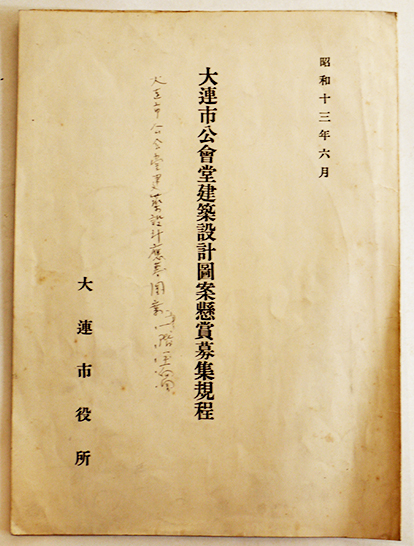 昭和十三年六月
大連市公會堂建築設計圖案懸賞募集規程
大連市公会堂建築設計應募図案
大連市役所